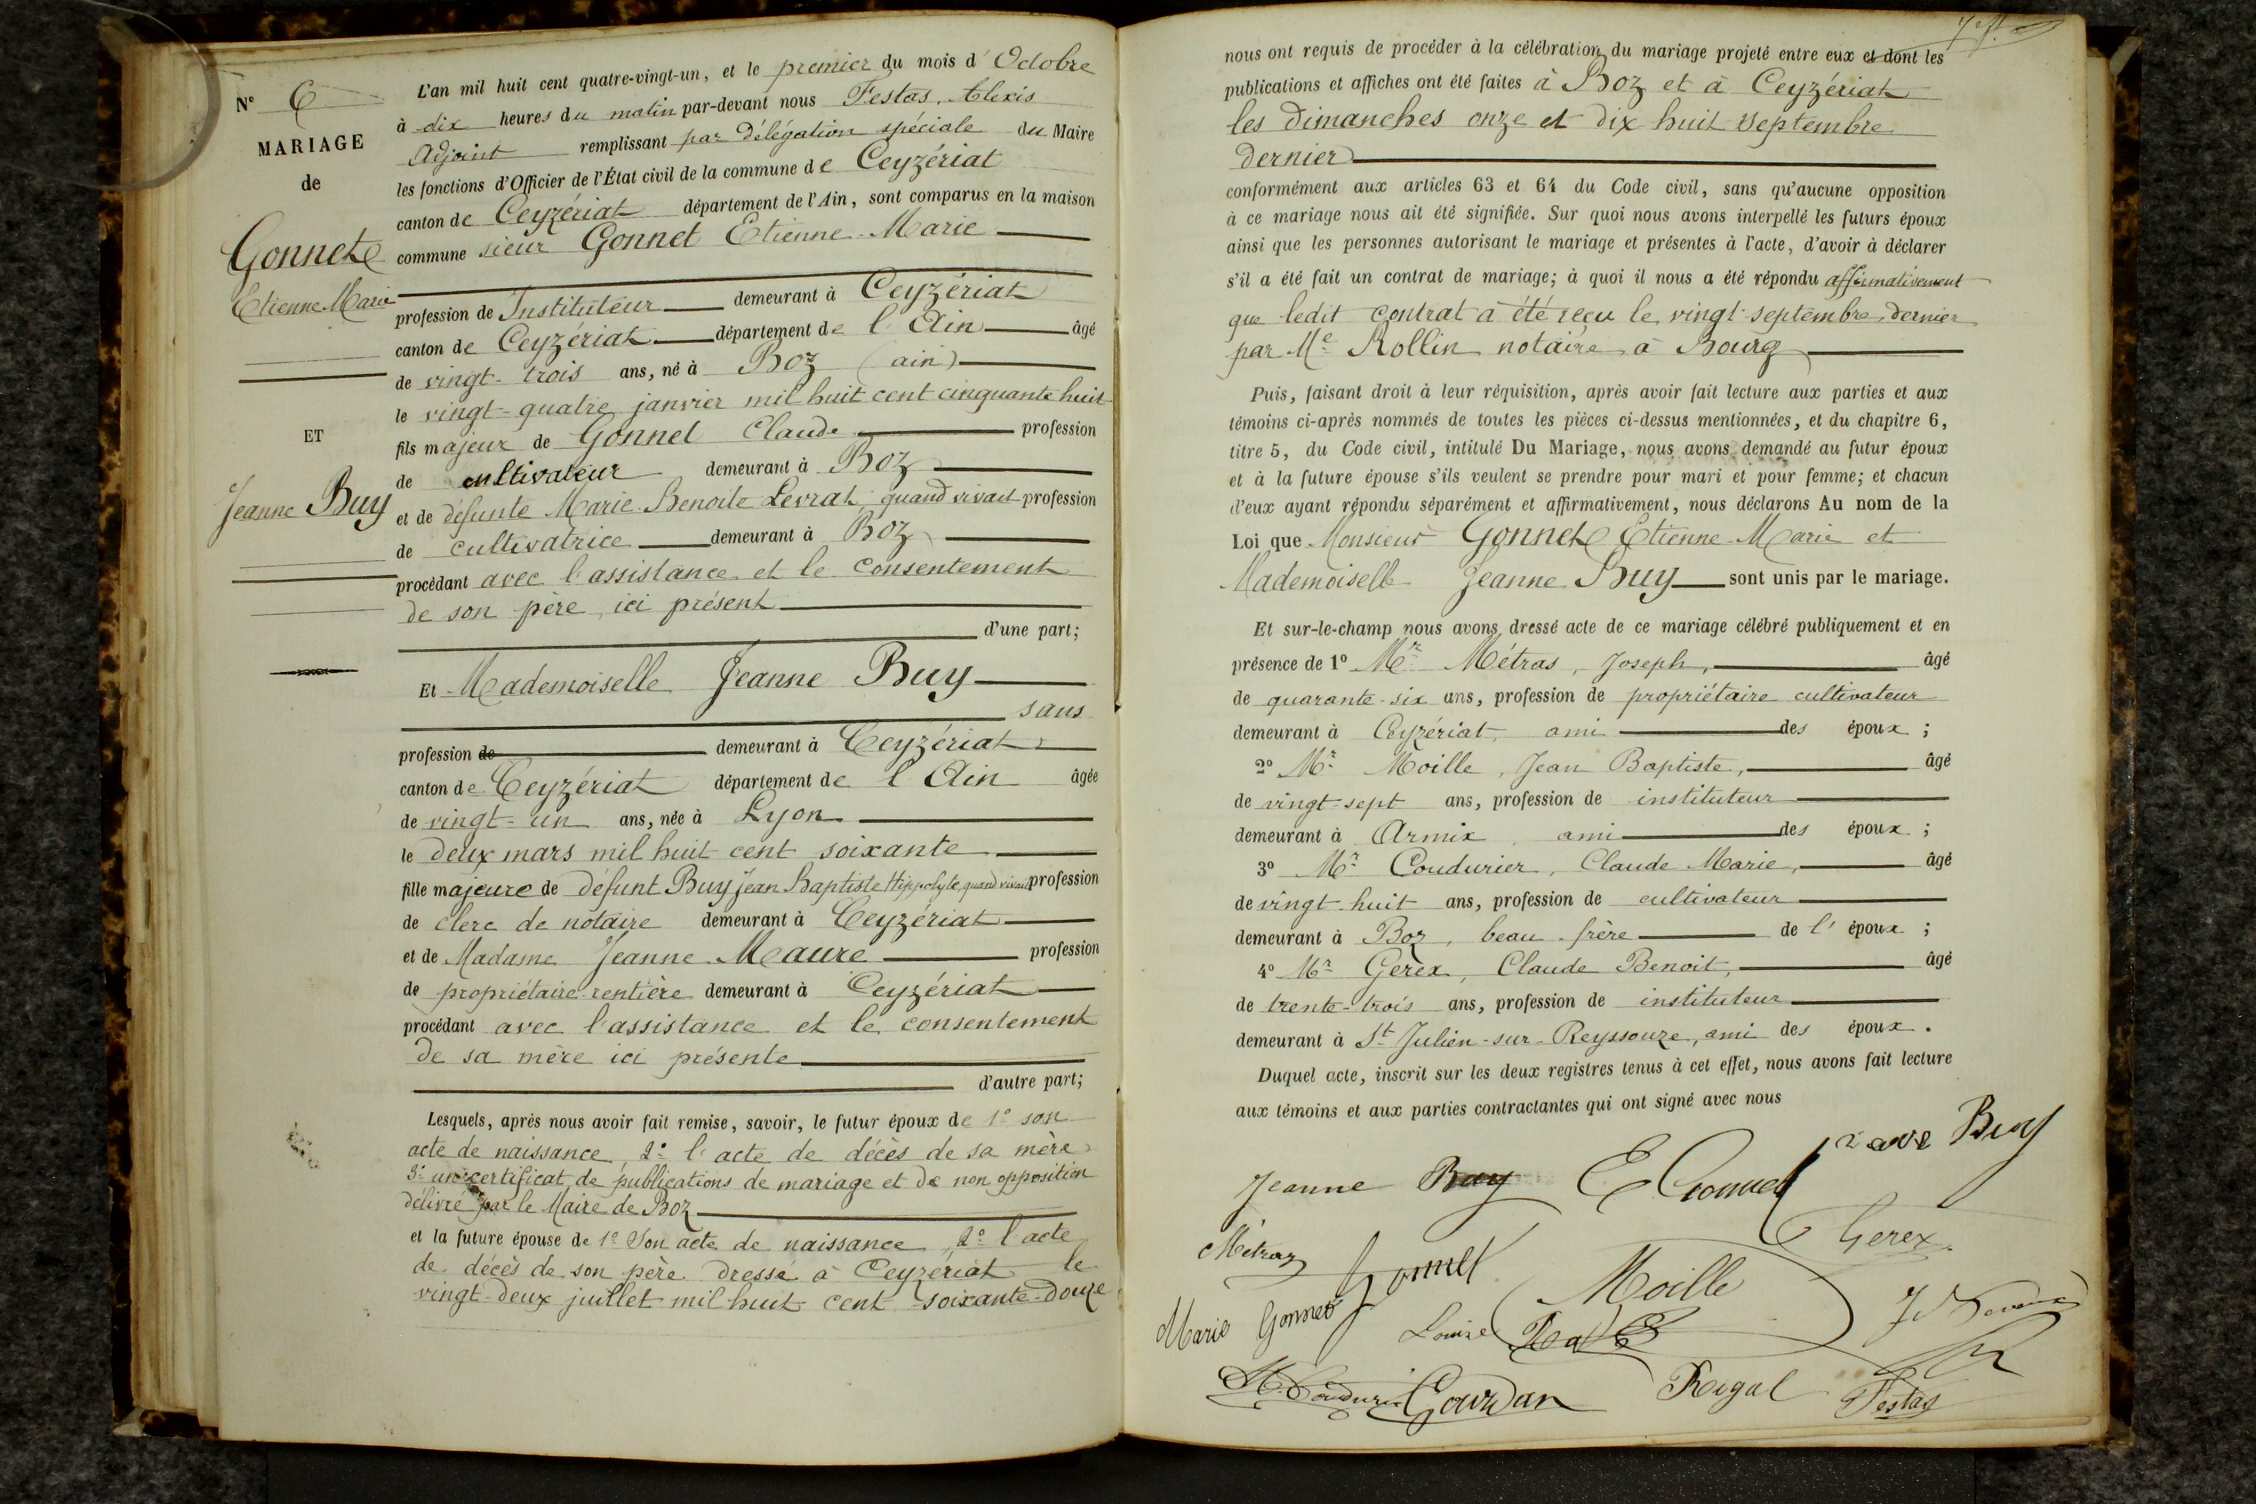 N° 6
MARIAGE
de
Gonnet
Etienne Marie
ET
Jeanne Buy
L'an mil huit cent quatre-vingt-un, et le premier du mois d'Octobre
à dix heures du matin par-devant nous Festas, Alexis
Adjoint remplissant par délégation spéciale du Maire
les fonctions d'Officier de l'État civil de la commune de Ceyzériat
canton de Ceyzériat département de l'Ain, sont comparus en la maison
commune sieur Gonnet Etienne-Marie
profession de Instituteur demeurant à Ceyzériat
canton de Ceyzériat département de l'Ain âgé
de vingt-trois ans, né à Boz (ain)
le vingt-quatre janvier mil huit cent cinquante huit
fils majeur de Gonnet Claude profession
de cultivateur demeurant à Boz
et de défunte Marie-Benoite Levrat, quand vivait profession
de cultivatrice demeurant à Boz
procédant avec l'assistance et le consentement
de son père, ici présent
d'une part;
Et Mademoiselle Jeanne Buy
sans
profession de demeurant à Ceyzériat
canton de Ceyzériat département de l'Ain âgée
de vingt-un ans, née à Lyon
le deux mars mil huit cent soixante
fille majeure de défunt Buy Jean Baptiste Hippolyte, quand vivait profession
de clerc de notaire demeurant à Ceyzériat
et de Madame Jeanne Maure profession
de propriétaire-rentière demeurant à Ceyzériat
procédant avec l'assistance et le consentement
de sa mère ici présente
d'autre part;
Lesquels, après nous avoir fait remise, savoir, le futur époux de 1° son
acte de naissance, 2° l'acte de décès de sa mère
3° un certificat de publications de mariage et de non opposition
délivré par le Maire de Boz
et la future épouse de 1° Son acte de naissance, 2° l'acte
de décès de son père dressé à Ceyzériat le
vingt-deux juillet mil huit cent soixante-douze
nous ont requis de procéder à la célébration du mariage projeté entre eux et dont les
publications et affiches ont été faites à Boz et à Ceyzériat
les dimanches onze et dix huit septembre
dernier
conformément aux articles 63 et 64 du Code civil, sans qu'aucune opposition
à ce mariage nous ait été signifiée. Sur quoi nous avons interpellé les futurs époux
ainsi que les personnes autorisant le mariage et présentes à l'acte, d'avoir à déclarer
s'il a été fait un contrat de mariage; à quoi il nous a été répondu affirmativement
que ledit contrat a été reçu le vingt septembre dernier
par Me Rollin notaire à Bourg
Puis, faisant droit à leur réquisition, après avoir fait lecture aux parties et aux
témoins ci-après nommés de toutes les pièces ci-dessus mentionnées, et du chapitre 6,
titre 5, du Code civil, intitulé Du Mariage, nous avons demandé au futur époux
et à la future épouse s'ils veulent se prendre pour mari et pour femme; et chacun
d'eux ayant répondu séparément et affirmativement, nous déclarons Au nom de la
Loi que Monsieur Gonnet Etienne-Marie et
Mademoiselle Jeanne Buy sont unis par le mariage.
Et sur-le-champ nous avons dressé acte de ce mariage célébré publiquement et en
présence de 1° Mr Métras, Joseph, âgé
de quarante-six ans, profession de propriétaire cultivateur
demeurant à Ceyzériat, ami des époux ;
2° Mr Moille, Jean Baptiste, âgé
de vingt-sept ans, profession de instituteur
demeurant à Armix, ami des époux ;
3° Mr Coudurier, Claude Marie, âgé
de vingt-huit ans, profession de cultivateur
demeurant à Boz, beau-frère de l'époux ;
4° Mr Gerex, Claude Benoit, âgé
de trente-trois ans, profession de instituteur
demeurant à St Julien-sur-Reyssouze, ami des époux.
Duquel acte, inscrit sur les deux registres tenus à cet effet, nous avons fait lecture
aux témoins et aux parties contractantes qui ont signé avec nous
Buy
Jeanne Buy E Gonnet
Gerex
Métraz Gonnet
Moille
Marie Gonnet Louise
Gourdan Rigal Festas